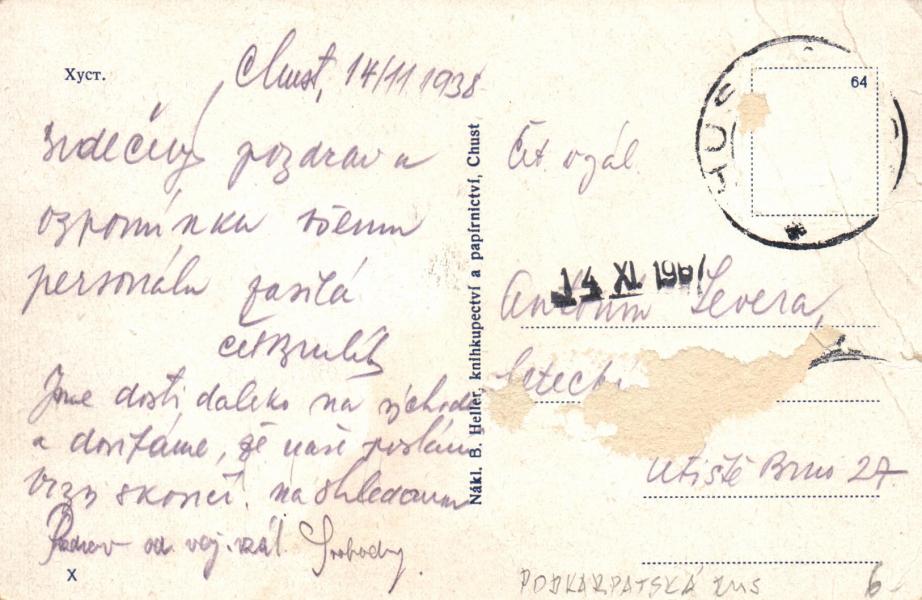 Хуст.
Chust, 14/11 1938
Srdečný pozdrav a
vzpomínku všemu
personálu zasílá
Jsme dosti daleko na východě
a doufáme, že naše poslání
brzy skončí. na shledanou
Pozdrav od voj. vzál. Svobody.
X
Nákl. B. Heller, knihkupectví a papírnictví, Chust
64
HUS
Čet vzál.
14 XI. 196
Antonín Severa,
letecké
utiště Brno 27
PODKARPATSKÁ RUS
6-